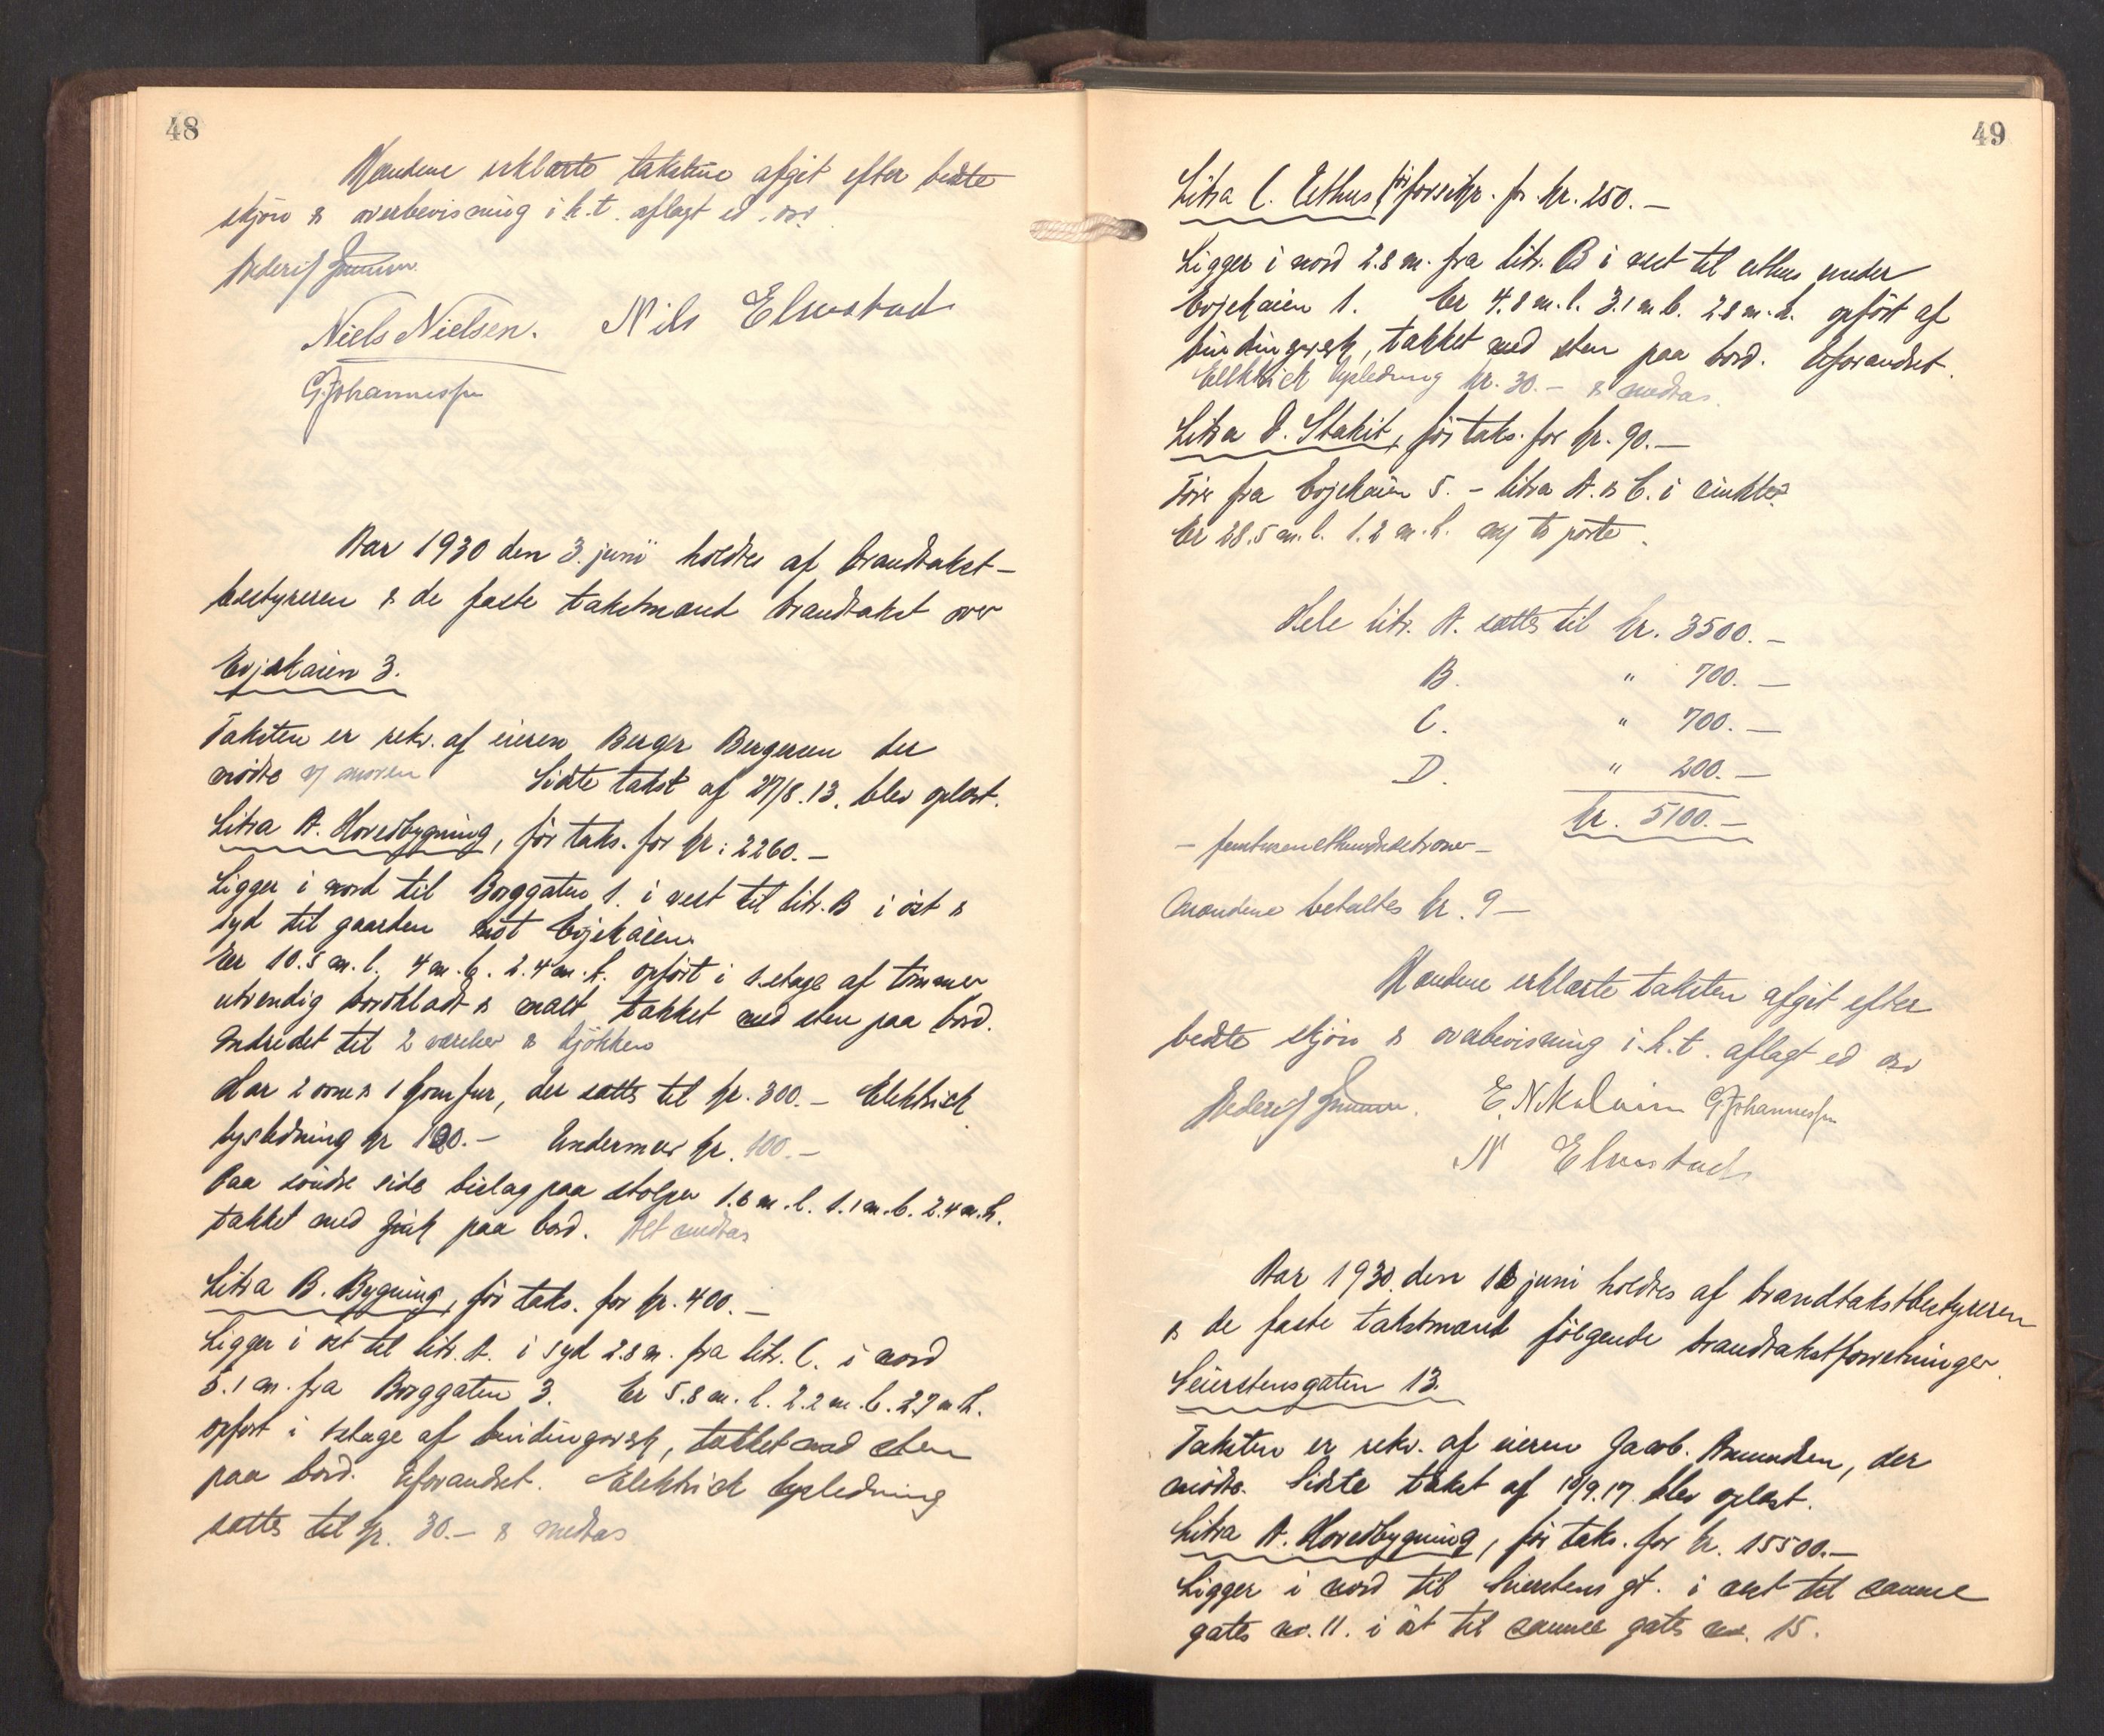 48
Mændene erklærte taksten afgit efter bedste
skjøn & overbevisning i h.t. aflagt ed. osv.
Niels Nielsen. Nils Elvestad
G Johannessen
Aar 1930 den 3. juni holdtes af brandtakst-
bestyreren & de faste takstmænd brandtakst over
Evjekaien 3.
Taksten er rekv. af eieren Berger Bergersen der
mødte v/ moren Sidste takst af 27/8.13. blev oplæst.
Litra A. Hovedbygning, før taks. for kr: 2260.-
Ligger i nord til Borggaten 1. i vest til litr. B i øst &
syd til gaarden mot Evjekaien.
Er 10.5 m. l. 4 m. b. 2.4 m. h. opført i 1 etage af tømmer
utvendig bordklædt & malt, tækket med sten paa bord.
Indredet til 2 værelser & kjøkken
Har 2 ovne & 1 komfur, der sættes til kr. 300.- Elektrisk
lysledning kr 120.- Undermur kr. 100.-
Paa søndre side bislag paa stolper 1.6 m. l. 1.1 m. b. 2.4 m. h.
tækket med zink paa bord. Alt medtas
Litra B. Bygning, før taks. for kr. 400.-
Ligger i øst til litr. A. i syd 2.8 m. fra litr. C. i nord
5.1 m. fra Borggaten 3. Er 5.8 m. l. 2.2 m. b. 2.7 m. h.
opført i 1 etage af bindingsverk, tækket med sten
paa bord. Uforandret. Elektrisk lysledning
sættes til kr. 30.- & medtas
49
Litra C. Uthus, før forsikr. for kr. 250.-
Ligger i nord 2.8 m. fra litr. B i vest til uthus under
Evjekaien 1. Er 4.8 m. l. 3.1 m b. 2.8 m. h. opført af
bindingsverk, tækket med sten paa bord. Uforandret.
Elektrisk lysledning kr. 30.- & medtas.
Litra D. Stakit, før taks. for kr. 90.-
Fører fra Evjekaien 5. - litra A. & C. i vinkler
Er 28.5 m. l. 1.2 m. h. og to porte.
Hele litr. A. sættes til kr. 3500.-
B. " 700.-
C. " 700.-
D. " 200.-
kr. 5100.-
- femtusenethundredekroner -
Mændene betaltes kr. 9-
Mændene erklærte taksten afgit efter
bedste skjøn & overbevisning i. h. t. aflagt ed osv
E. Nikolaisen G Johannessen
N Elvestad
Aar 1930 den juni holdtes af brandtakstbestyreren
& de faste takstmænd følgende brandtakstforretninger.
Seierstensgaten 13.
Taksten er rekv. af eieren Jacob. Amundsen, der
mødte. Sidste takst af 10/9.17. blev oplæst.
Litra A. Hovedbygning, før taks. for kr. 15500.-
Ligger i nord til Seierstens gt. i vest til samme
gates no. 11. i øst til samme gates no. 15.